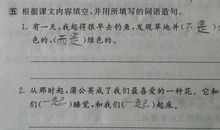 五 根据课文内容填空,并用所填写的词语造句。
1. 有一天,我起得很早去钓鱼,发现草地并(不是
色的,(而是)绿色的。
2. 从那时起,蒲公英成了我们最喜爱的一种花。它和
们(一起)睡觉,和我们(一起)起床。